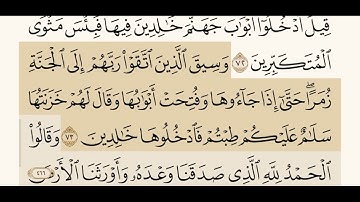 قِيلَ ٱدۡخُلُوٓاْ أَبۡوَٰبَ جَهَنَّمَ خَٰلِدِينَ فِيهَاۖ فَبِئۡسَ مَثۡوَى
ٱلۡمُتَكَبِّرِينَ ٧٢ وَسِيقَ ٱلَّذِينَ ٱتَّقَوۡاْ رَبَّهُمۡ إِلَى ٱلۡجَنَّةِ
زُمَرًاۖ حَتَّىٰٓ إِذَا جَآءُوهَا وَفُتِحَتۡ أَبۡوَٰبُهَا وَقَالَ لَهُمۡ خَزَنَتُهَا
سَلَٰمٌ عَلَيۡكُمۡ طِبۡتُمۡ فَٱدۡخُلُوهَا خَٰلِدِينَ ٧٣ وَقَالُواْ
ٱلۡحَمۡدُ لِلَّهِ ٱلَّذِي صَدَقَنَا وَعۡدَهُۥ وَأَوۡرَثَنَا ٱلۡأَرۡضَ
٤٦٦